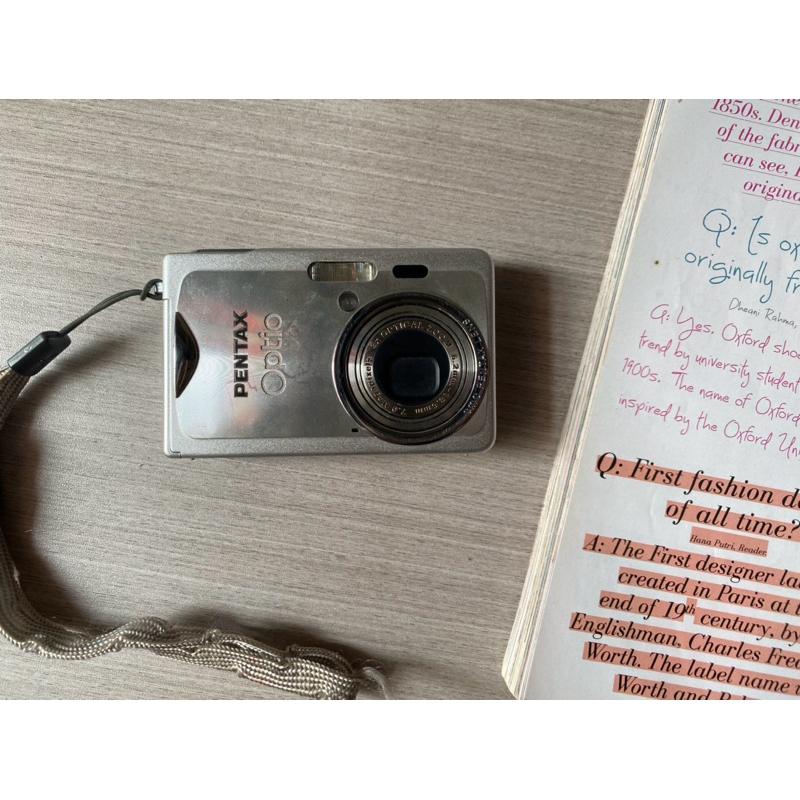 PENTAX
Optio
3x OPTICAL ZOOM
7.0 Megapixels
1850s. Den
of the fabr
can see,
origina
Q: Is ox
originally fr
Dheani Rahma,
A: Yes. Oxford shoe
trend by university student
1900s. The name of Oxford
inspired by the Oxford Uni
Q: First fashion de
of all time?
Hana Putri, Reader.
A: The First designer la
created in Paris at t
end of 19th century, by
Englishman, Charles Fred
Worth. The label name
Worth and